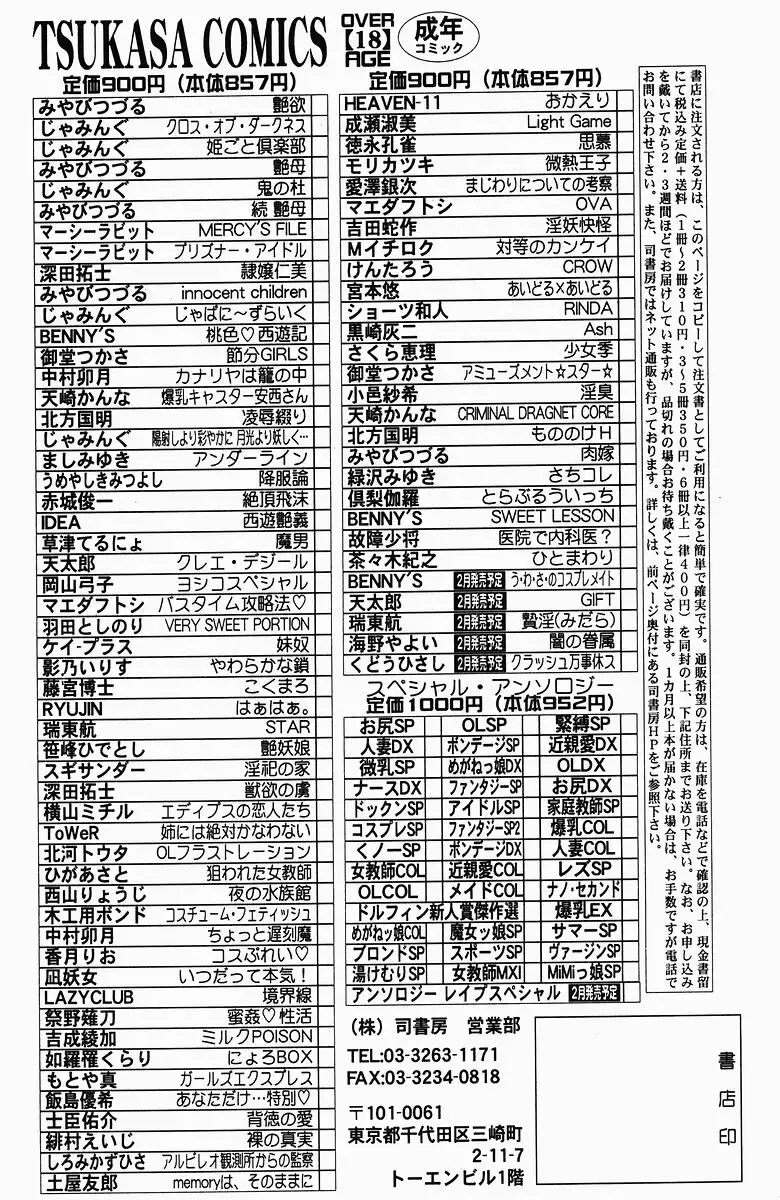 TSUKASA COMICS
OVER
【18】
AGE
成年
コミック
定価900円（本体857円）
みやびつづる 艶欲
じゃみんぐ クロス・オブ・ダークネス
じゃみんぐ 姫ごと倶楽部
みやびつづる 艶母
じゃみんぐ 鬼の杜
みやびつづる 続 艶母
マーシーラビット MERCY'S FILE
マーシーラビット プリズナー・アイドル
深田拓士 隷嬢仁美
みやびつづる innocent children
じゃみんぐ じゃぱに〜ずらいく
BENNY'S 桃色♡西遊記
御堂つかさ 節分GIRLS
中村卯月 カナリヤは籠の中
天崎かんな 爆乳キャスター安西さん
北方国明 凌辱綴り
じゃみんぐ 陽射しより彩やかに 月光より妖しく…
ましみゆき アンダーライン
うめやしきみつよし 降服論
赤城俊一 絶頂飛沫
IDEA 西遊艶義
草津てるにょ 魔男
天太郎 クレエ・デジール
岡山弓子 ヨシコスペシャル
マエダフトシ バスタイム攻略法♡
羽田としのり VERY SWEET PORTION
ケイ-プラス 妹奴
影乃いりす やわらかな鎖
藤宮博士 こくまろ
RYUJIN はぁはぁ。
瑞東航 STAR
笹峰ひでとし 艶妖娘
スギサンダー 淫祀の家
深田拓士 獣欲の虜
横山ミチル エディプスの恋人たち
ToWeR 姉には絶対かなわない
北河トウタ OLフラストレーション
ひがあさと 狙われた女教師
西山りょうじ 夜の水族館
木工用ボンド コスチューム・フェティッシュ
中村卯月 ちょっと遅刻魔
香月りお コスぷれい♡
凪妖女 いつだって本気！
LAZYCLUB 境界線
祭野薙刀 蜜姦♡性活
吉成綾加 ミルクPOISON
如羅擢くらり にょろBOX
もとや真 ガールズエクスプレス
飯島優希 あなただけ…特別♡
士臣佑介 背徳の愛
緋村えいじ 裸の真実
しろみかずひさ アルビレオ観測所からの監察
土屋友郎 memoryは、そのままに
定価900円（本体857円）
HEAVEN-11 おかえり
成瀬淑美 Light Game
徳永孔雀 思慕
モリカツキ 微熱王子
愛澤銀次 まじわりについての考察
マエダフトシ OVA
吉田蛇作 淫妖快怪
Mイチロク 対等のカンケイ
けんたろう CROW
宮本悠 あいどる×あいどる
ショーツ和人 RINDA
黒崎灰二 Ash
さくら恵理 少女季
御堂つかさ アミューズメント☆スター☆
小邑紗希 淫臭
天崎かんな CRIMINAL DRAGNET CORE
北方国明 もののけH
みやびつづる 肉嫁
緑沢みゆき さちコレ
倶梨伽羅 とらぶるういっち
BENNY'S SWEET LESSON
故障少将 医院で内科医？
茶々木紀之 ひとまわり
BENNY'S 2月発売予定 う・わ・さ・のコスプレメイト
天太郎 2月発売予定 GIFT
瑞東航 2月発売予定 贄淫(みだら)
海野やよい 2月発売予定 闇の眷属
くどうひさし 2月発売予定 クラッシュ万事休ス
スペシャル・アンソロジー
定価1000円（本体952円）
お尻SP OLSP 緊縛SP
人妻DX ボンデージSP 近親愛DX
微乳SP めがねっ娘DX OLDX
ナースDX ファンタジーSP お尻DX
ドックンSP アイドルSP 家庭教師SP
コスプレSP ファンタジーSP2 爆乳COL
くノ一SP ボンデージDX 人妻COL
女教師COL 近親愛COL レズSP
OLCOL メイドCOL ナノ・セカンド
ドルフィン新人賞傑作選 爆乳EX
めがねッ娘COL 魔女ッ娘SP サマーSP
ブロンドSP スポーツSP ヴァージンSP
湯けむりSP 女教師MXI MiMiっ娘SP
アンソロジー レイプスペシャル 2月発売予定
（株）司書房 営業部
TEL:03-3263-1171
FAX:03-3234-0818
〒101-0061
東京都千代田区三崎町
2-11-7
トーエンビル1階
書店印
書店に注文される方は、このページをコピーして注文書としてご利用になると簡単で確実です。通販希望の方は、在庫を電話などで確認の上、現金書留
にて税込み定価＋送料（1冊〜2冊310円・3〜5冊350円・6冊以上一律400円）を同封の上、下記住所までお送り下さい。なお、お申し込み
を戴いてから2・3週間ほどでお届けしていますが、品切れの場合お待ち戴くことがございます。1カ月以上本が届かない場合は、お手数ですが電話で
お問い合わせ下さい。また、司書房ではネット通販も行っております。詳しくは、前ページ奥付にある司書房HPをご参照下さい。